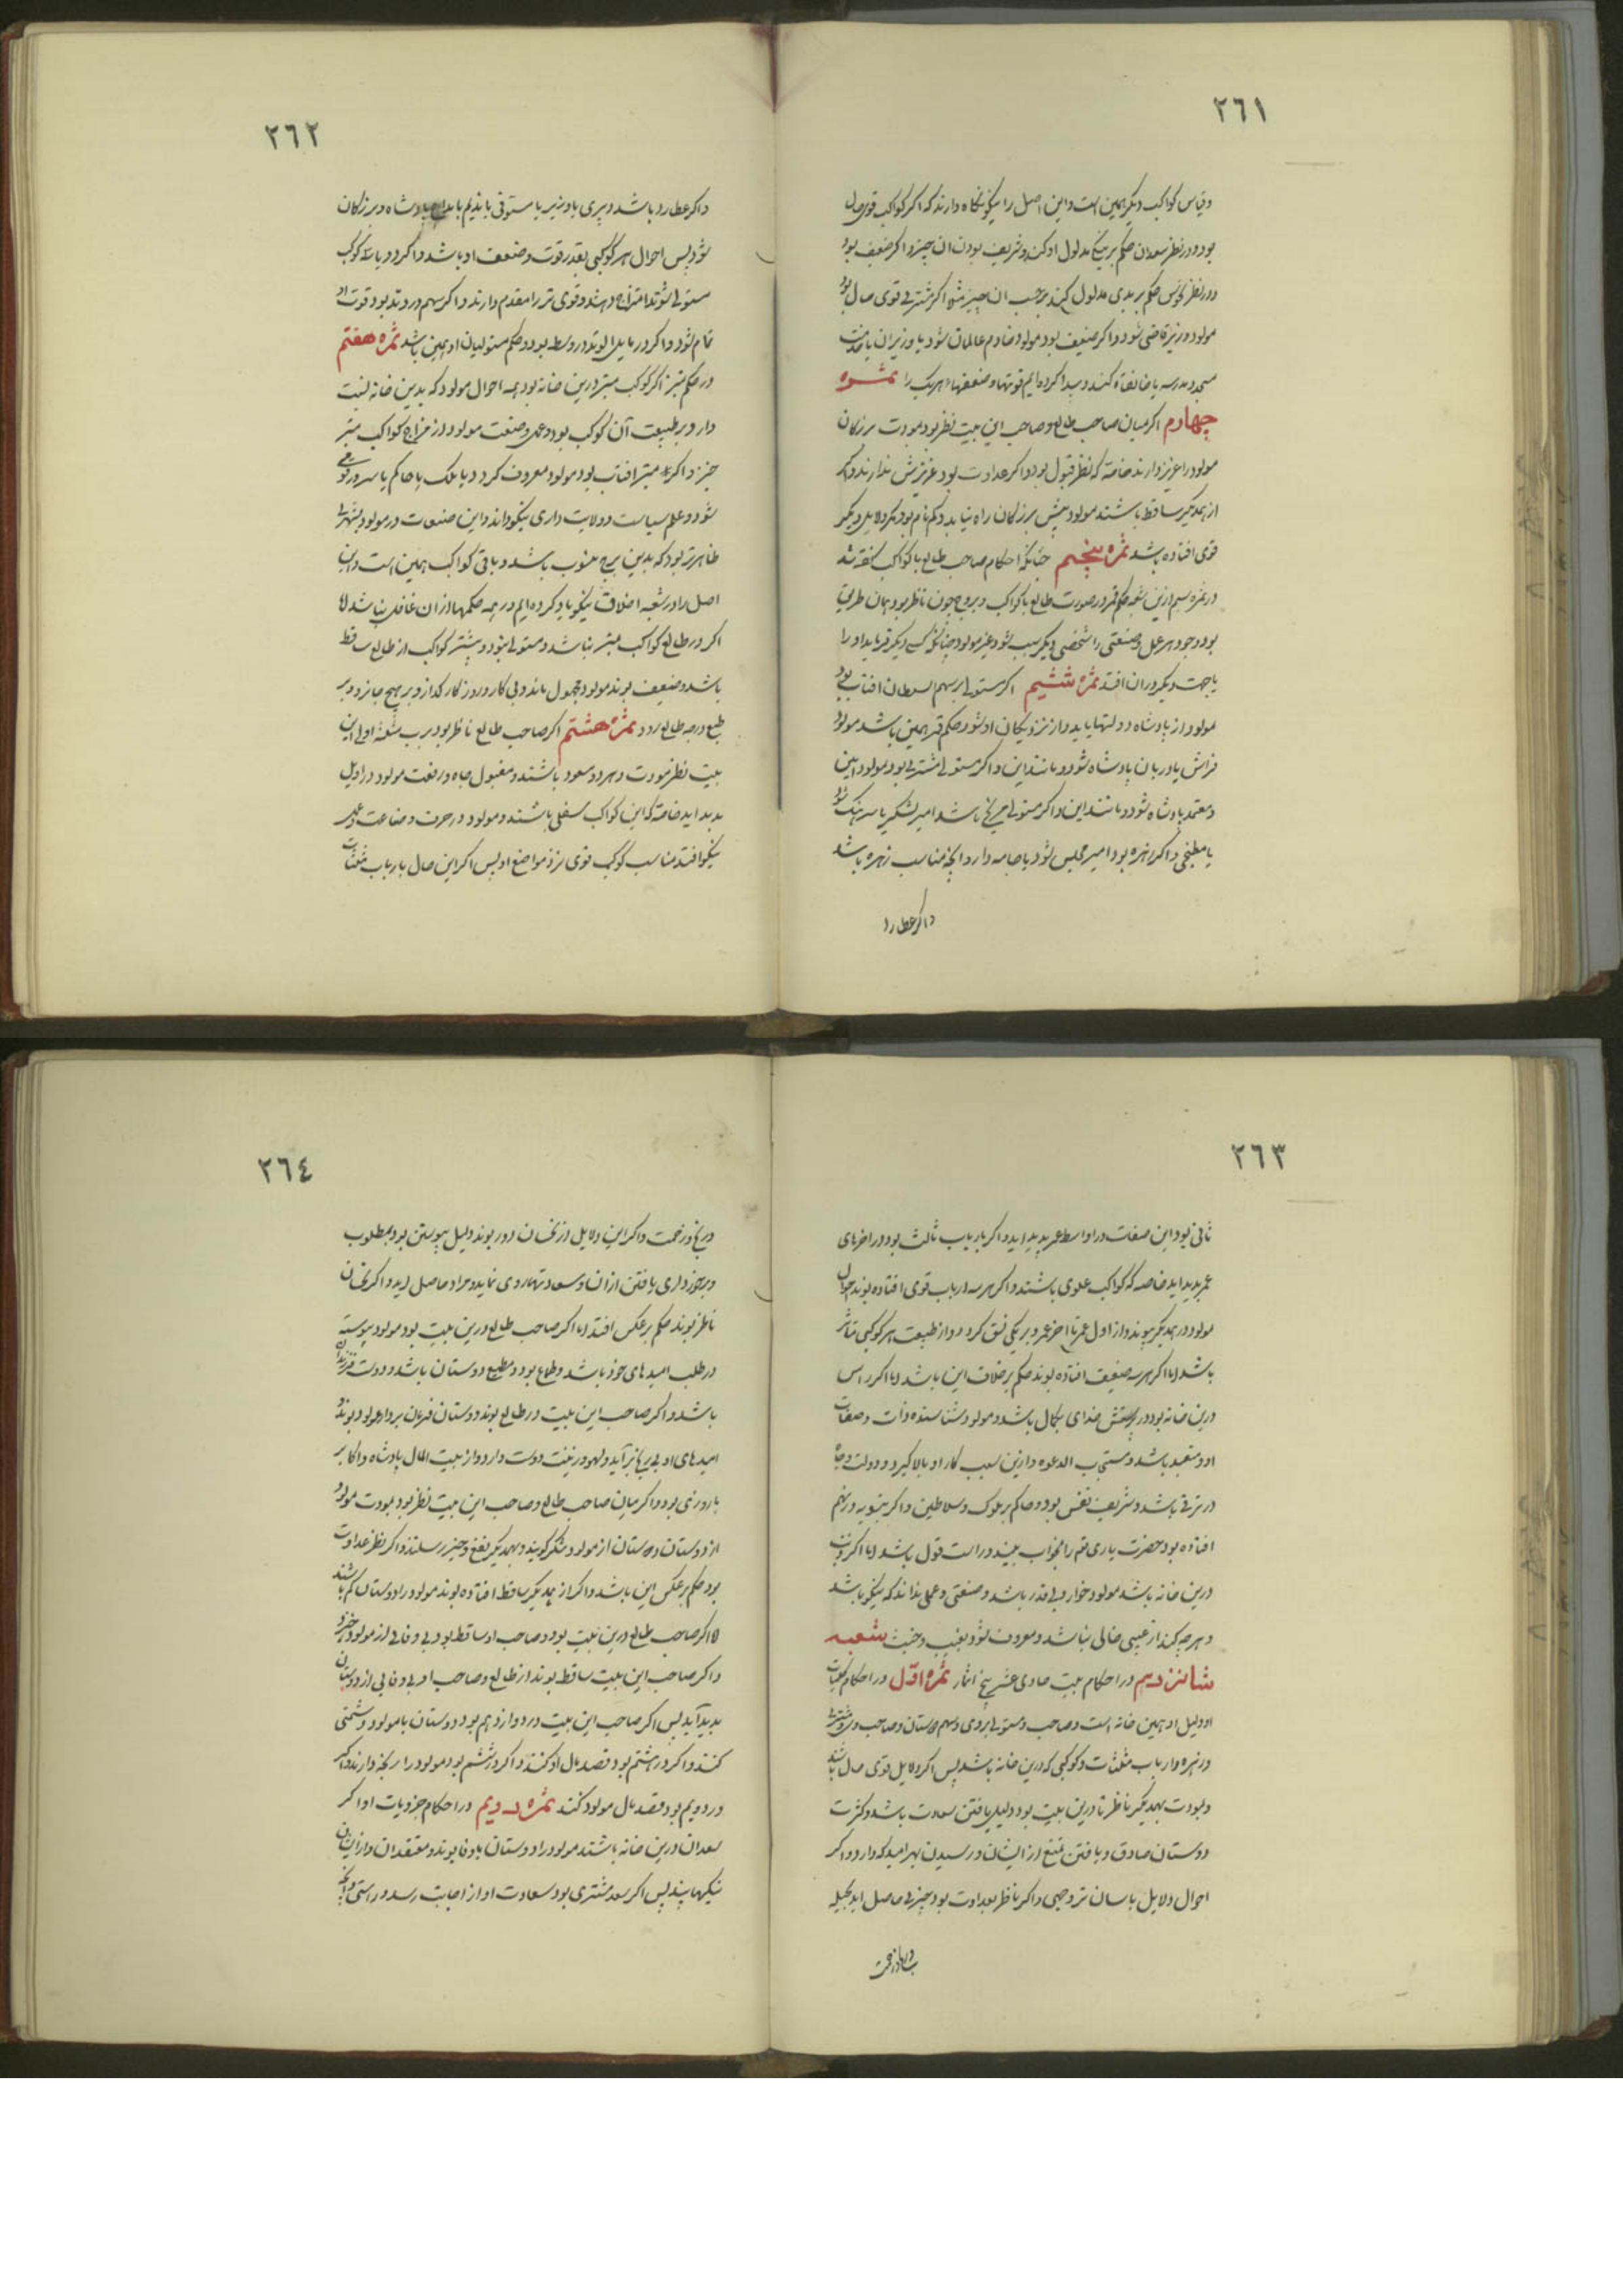 ٢٦١
و قیاس کواکب دیگر همین است و این اصل را نیکو نگاه دارند که اگر کواکب قوی حال
بود و در نظر سعدان حکم بر نیکی مدلول او کنند و شریف بودن ان چیز و اگر ضعیف بود
و در نظر نحوس حکم بر بدی مدلول کنند بر حسب ان چیز مثلا اگر مشتری قوی حال بود
مولود وزیر قاضی شود و اگر ضعیف بود مولود خادم عالمان شود یا وزیران یا خدمت
مسجد و مدرسه یا خانقاه کند و پیدا کرده ایم قوتها و ضعفهاء هر یک را ثمره
چهارم اگر میان صاحب طالع و صاحب این بیت نظر بود بمودت بزرگان
مولود را عزیز دارند خاصه که نظر قبول بود و اگر عداوت بود عزیزش ندارند و اگر
از همدیگر ساقط باشند مولود پیش بزرگان راه نیابد و کم نام بود مگر دلایل دیگر
قوی افتاده باشد ثمره پنجم چنانکه احکام صاحب طالع با کواکب گفته شد
در ثمره سیم ازین شعبه حکم قمر در صورت طالع با کواکب و بروج چون ناظر بود همان طریق
بود و جود هر عمل و صنعتی را شخصی دیگر سبب شود غیر مولود چنانکه کسی دیگر فرماید او را
یا جهت دیگر در ان افتد ثمره ششیم اگر مستولی بر سهم السلطان افتاب بود
مولود از پادشاه دولتها یابد و از نزدیکان او شود و حکم قمر همین باشد مولود
فراش یا دربان پادشاه شود و مانند این و اگر مستولی مشتری بود مولود امین
و معتمد پادشاه شود و مانند این و اگر مستولی مریخ باشد امیر لشکر یا سرهنگ شود
یا مطبخی و اگر زهره بود امیر مجلس شود یا جامه دار و انچه مناسب زهره باشد
و اگر عطارد
٢٦٢
و اگر عطارد باشد دبیری یا وزیر یا مستوفی یا ندیم یا مداح پادشاه و بزرگان
شود پس احوال هر کوکبی بقدر قوت و ضعف او باشد و اگر دو یا سه کوکب
مستولی شوند امتزاج دهند و قوی تر را مقدم دارند و اگر سهم در وتد بود قوت او
تمام شود و اگر در مایل الوتد در وسط بود و حکم مستولیان او همین باشد ثمره هفتم
در حکم مبتز اگر کوکب مبتز درین خانه بود همه احوال مولود که بدین خانه نسبت
دارد بر طبیعت آن کوکب بود و عمل و صنعت مولود از مزاج کواکب مبتز
خیزد اگر مبتز افتاب بود مولود معروف گردد یا ملک یا حاکم یا سرور قومی
شود و علم سیاست و ولایت داری نیکو داند و این صنعت در مولود بشهرت
ظاهرتر بود که بدین برج منسوب باشد و باقی کواکب همین است و این
اصل را در شعبه اخلاق نیکو یاد کرده ایم در همه حکمها از ان غافل نباشد اما
اگر در طالع کواکب مبتز نباشد و مستولی نبود و بیشتر کواکب از طالع ساقط
باشد و ضعیف بوند مولود مجهول ماند و بی کار و روزگار گذارد و بر هیچ جا نرود و بر
طبع درجه طالع رود ثمره هشتم اگر صاحب طالع ناظر بود برب مثلثه اولی این
بیت نظر مودت و هر دو مسعود باشند و مقبول جاه و رفعت مولود در اول
پدید اید خاصه که این کواکب سفلی باشند و مولود در حرفت و صناعت و عمل
نیکو افتد مناسب کوکب قوی نزد مواضع او پس اگر این حال بارباب مثلثات
٢٦٣
ثانی بود این صفات در اواسط عمر پدید اید و اگر بارباب ثالث بود در اخرهای
عمر پدید اید خاصه که کواکب علوی باشند و اگر هر سه ارباب قوی افتاده بوند احوال
مولود در همدیگر پیوند و از اول عمر تا اخر عمر و بر یکی نسق گردد و از طبیعت هر کوکبی متأثر
باشد اما اگر هر سه ضعیف افتاده بوند حکم بر خلاف این باشد اما اگر راس
درین خانه بود در پرستش خدای بکمال باشد و مولود شناسنده ذات و صفات
او و متعبد باشد و مستجاب الدعوه و ازین سبب کار او بالا گیرد و دولت و جاه
در ترقی باشد و شریف نفس بود و حاکم بر ملوک و سلاطین و اگر بتسویه در نهم
افتاده بود حضرت باری تع را بخواب بیند و راست قول باشد اما اگر ذنب
درین خانه باشد مولود خوار و بی قدر باشد و صنعتی و عملی نداند که نیکو باشد
و هر چه کند از عیبی خالی نباشد و معروف شود بعیب و خبث شعبه
شانزدیم در احکام بیت حادی عشر پنج اثمار ثمره اول در احکام کلیات
او دلیل او همین خانه است و صاحب و مستولی بر وی و سهم دوستان و صاحب و مشتری
و زهره و ارباب مثلثات و کوکبی که درین خانه باشد پس اگر دلایل قوی حال باشند
و بمودت بهمدیگر ناظر تا درین بیت بود دلیل یافتن سعادت باشد و کثرت
دوستان صادق و یافتن تمتع از ایشان و رسیدن بهر امید که دارد و اگر
احوال دلایل باسان تر وجهی و اگر ناظر بعداوت بود چیزی حاصل اید بحیله
٢٦٤
و رنج و زحمت و اگر این دلایل از نحسان دور بوند دلیل پیوستن بود بمطلوب
و برخورداری یافتن از ان و سعادتها روی نماید و مراد حاصل اید و اگر نحسان
ناظر بوند حکم بر عکس افتد اما اگر صاحب طالع درین بیت بود مولود پیوسته
در طلب امیدهای خود باشد و طماع بود و مطیع دوستان باشد و دوست فرزندان
باشد و اگر صاحب این بیت در طالع بوند دوستان فرمان بردار مولود بوند و
امیدهای او بی رنج برآید و لهو و زینت دوست دارد و از بیت المال پادشاه و اکابر
با روزی بود و اگر میان صاحب طالع و صاحب این بیت نظر بود بمودت مولود
از دوستان و دوستان از مولود شکر گویند و بهمدیگر نفع و خیر رسانند و اگر نظر عداوت
بود حکم بر عکس این باشد و اگر از همدیگر ساقط افتاده بوند مولود را دوستان کم باشند
اما اگر صاحب طالع درین بیت بود و صاحب او ساقط بود بی وفایی از مولود خیزد
و اگر صاحب این بیت ساقط بوند از طالع و صاحب او بی وفایی از دوستان
پدید آید پس اگر صاحب این بیت در دوازدهم بود دوستان با مولود دشمنی
کنند و اگر در هشتم بود قصد مال او کنند و اگر در ششم بود مولود را رنجه دارند و اگر
در دویم بود قصد مال مولود کنند ثمره دویم در احکام جزویات او اگر
سعدان درین خانه باشند مولود را دوستان باوفا بوند و معتقدان و از ایشان
نیکیها بیند پس اگر سعد مشتری بود سعادت او از اصابت رسد و راستی و انکه